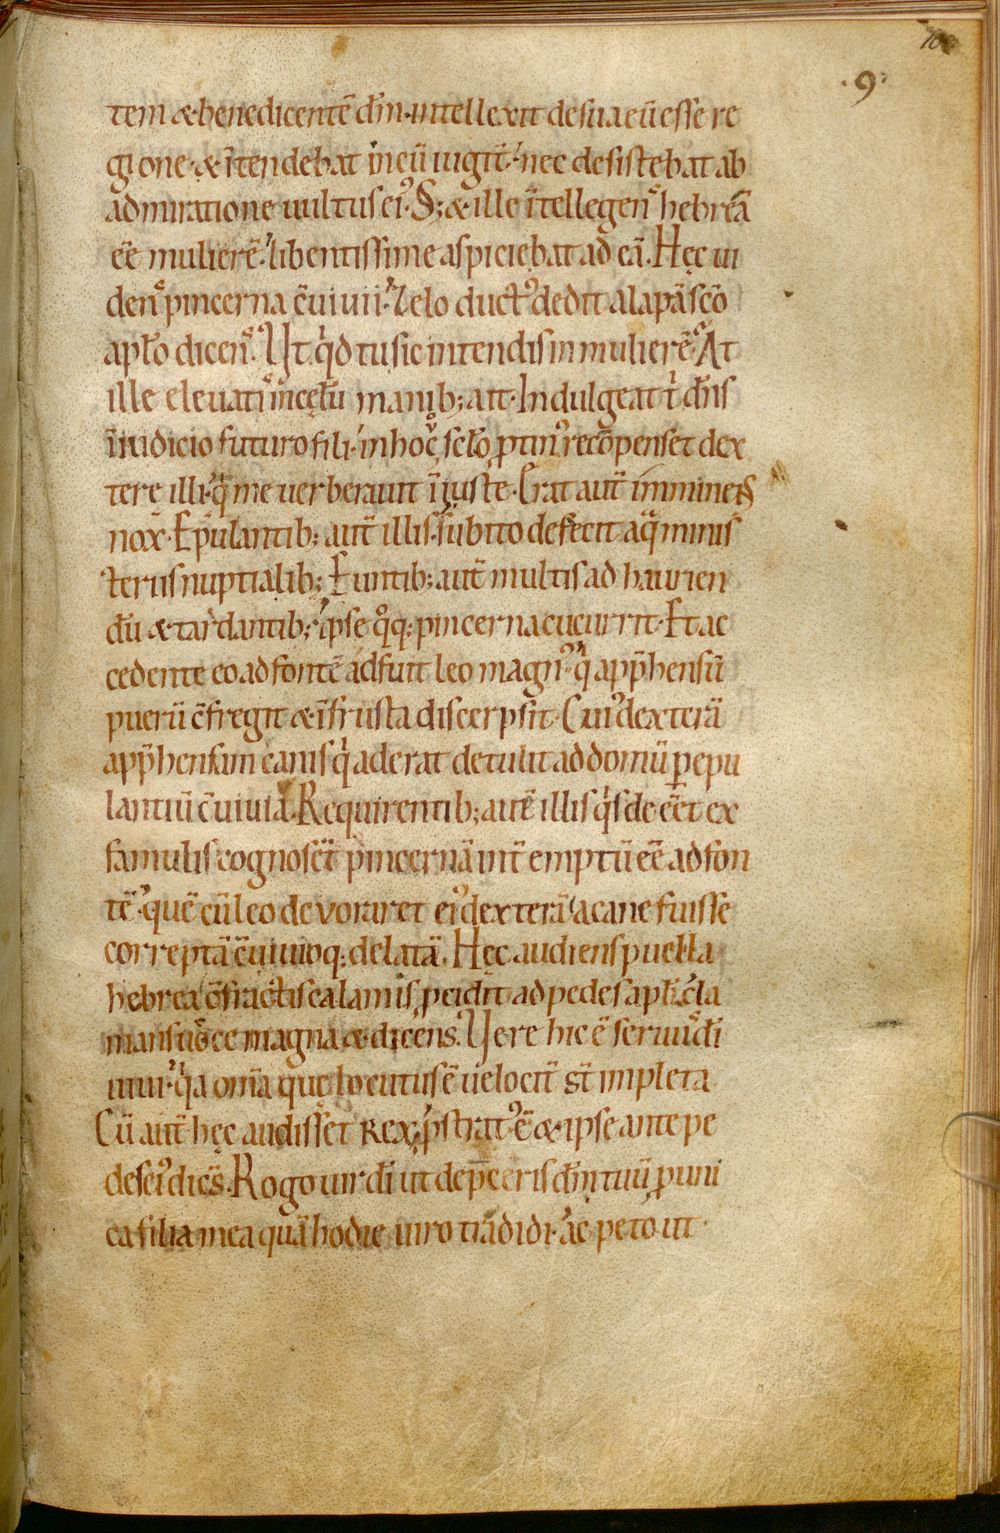 100
·9·
tem &·benedicentē dn̄m·intellexit de sua eū esse re
gione·& ītendebat ineū iugit̄·nec desistebat ab
admiratione uultus ei᾿·S;& ille ītellegen᾿ hebreā
eē mulierē·libentissime aspiciebat ad eā·Hęc ui
den᾿ pincerna c̄uiuii·Zelo duct᾿ dedit alapā sc̄o
aplo dicen᾿·Ut qd tu sic intendis in mulierē·At
ille eleuati᾿ in cęlū manib; ait·Indulgeat t̄ dn̄s
īiudicio futuro fili·in hoc sclo ptin᾿ recōpenset dex
tere illi·q me uerberauit īiuste·Erat aut̄ imminens
nox·Epulantib; aut̄ illis·subito defecit aqua minis
teriis nuptialib; Euntib; aut̄ multis ad haurien
dū & tardantib;·ipse qq; pincerna cucurrit·Et ac
cedente eo ad fontē adfuit leo magn᾿·q app̄hensū
puerū c̄fregit & ī frusta discerpsit·Cui᾿ dexterā
app̄hensam canis q aderat detulit ad domū p epu
lantiū c̄uiuia·Requirentib; autē illis qs de eēt ex
famulis cognoscit̄ pincernā int̄emptū eē ad fon
tē·quē cū leo deuoraret ei᾿ dexterā a cane fuisse
correptā c̄uiuioq; delatā·Hęc audiens puella
hebrea c̄fractis calamis pcidit ad pedes apli cla
mans uoce magna & dicens·Uere hic ē seruus di
uiui·qa omīa que locutus ē uelocit̄ st̄ impleta
Cū aut̄ hęc audisset rex·pstrat᾿ ē & ipse ante pe
des ei᾿ dicēs·Rogo uir di ut depceris dn̄m tuū p uni
ca filia mea quā hodie uiro tradidi·ac peto ut·